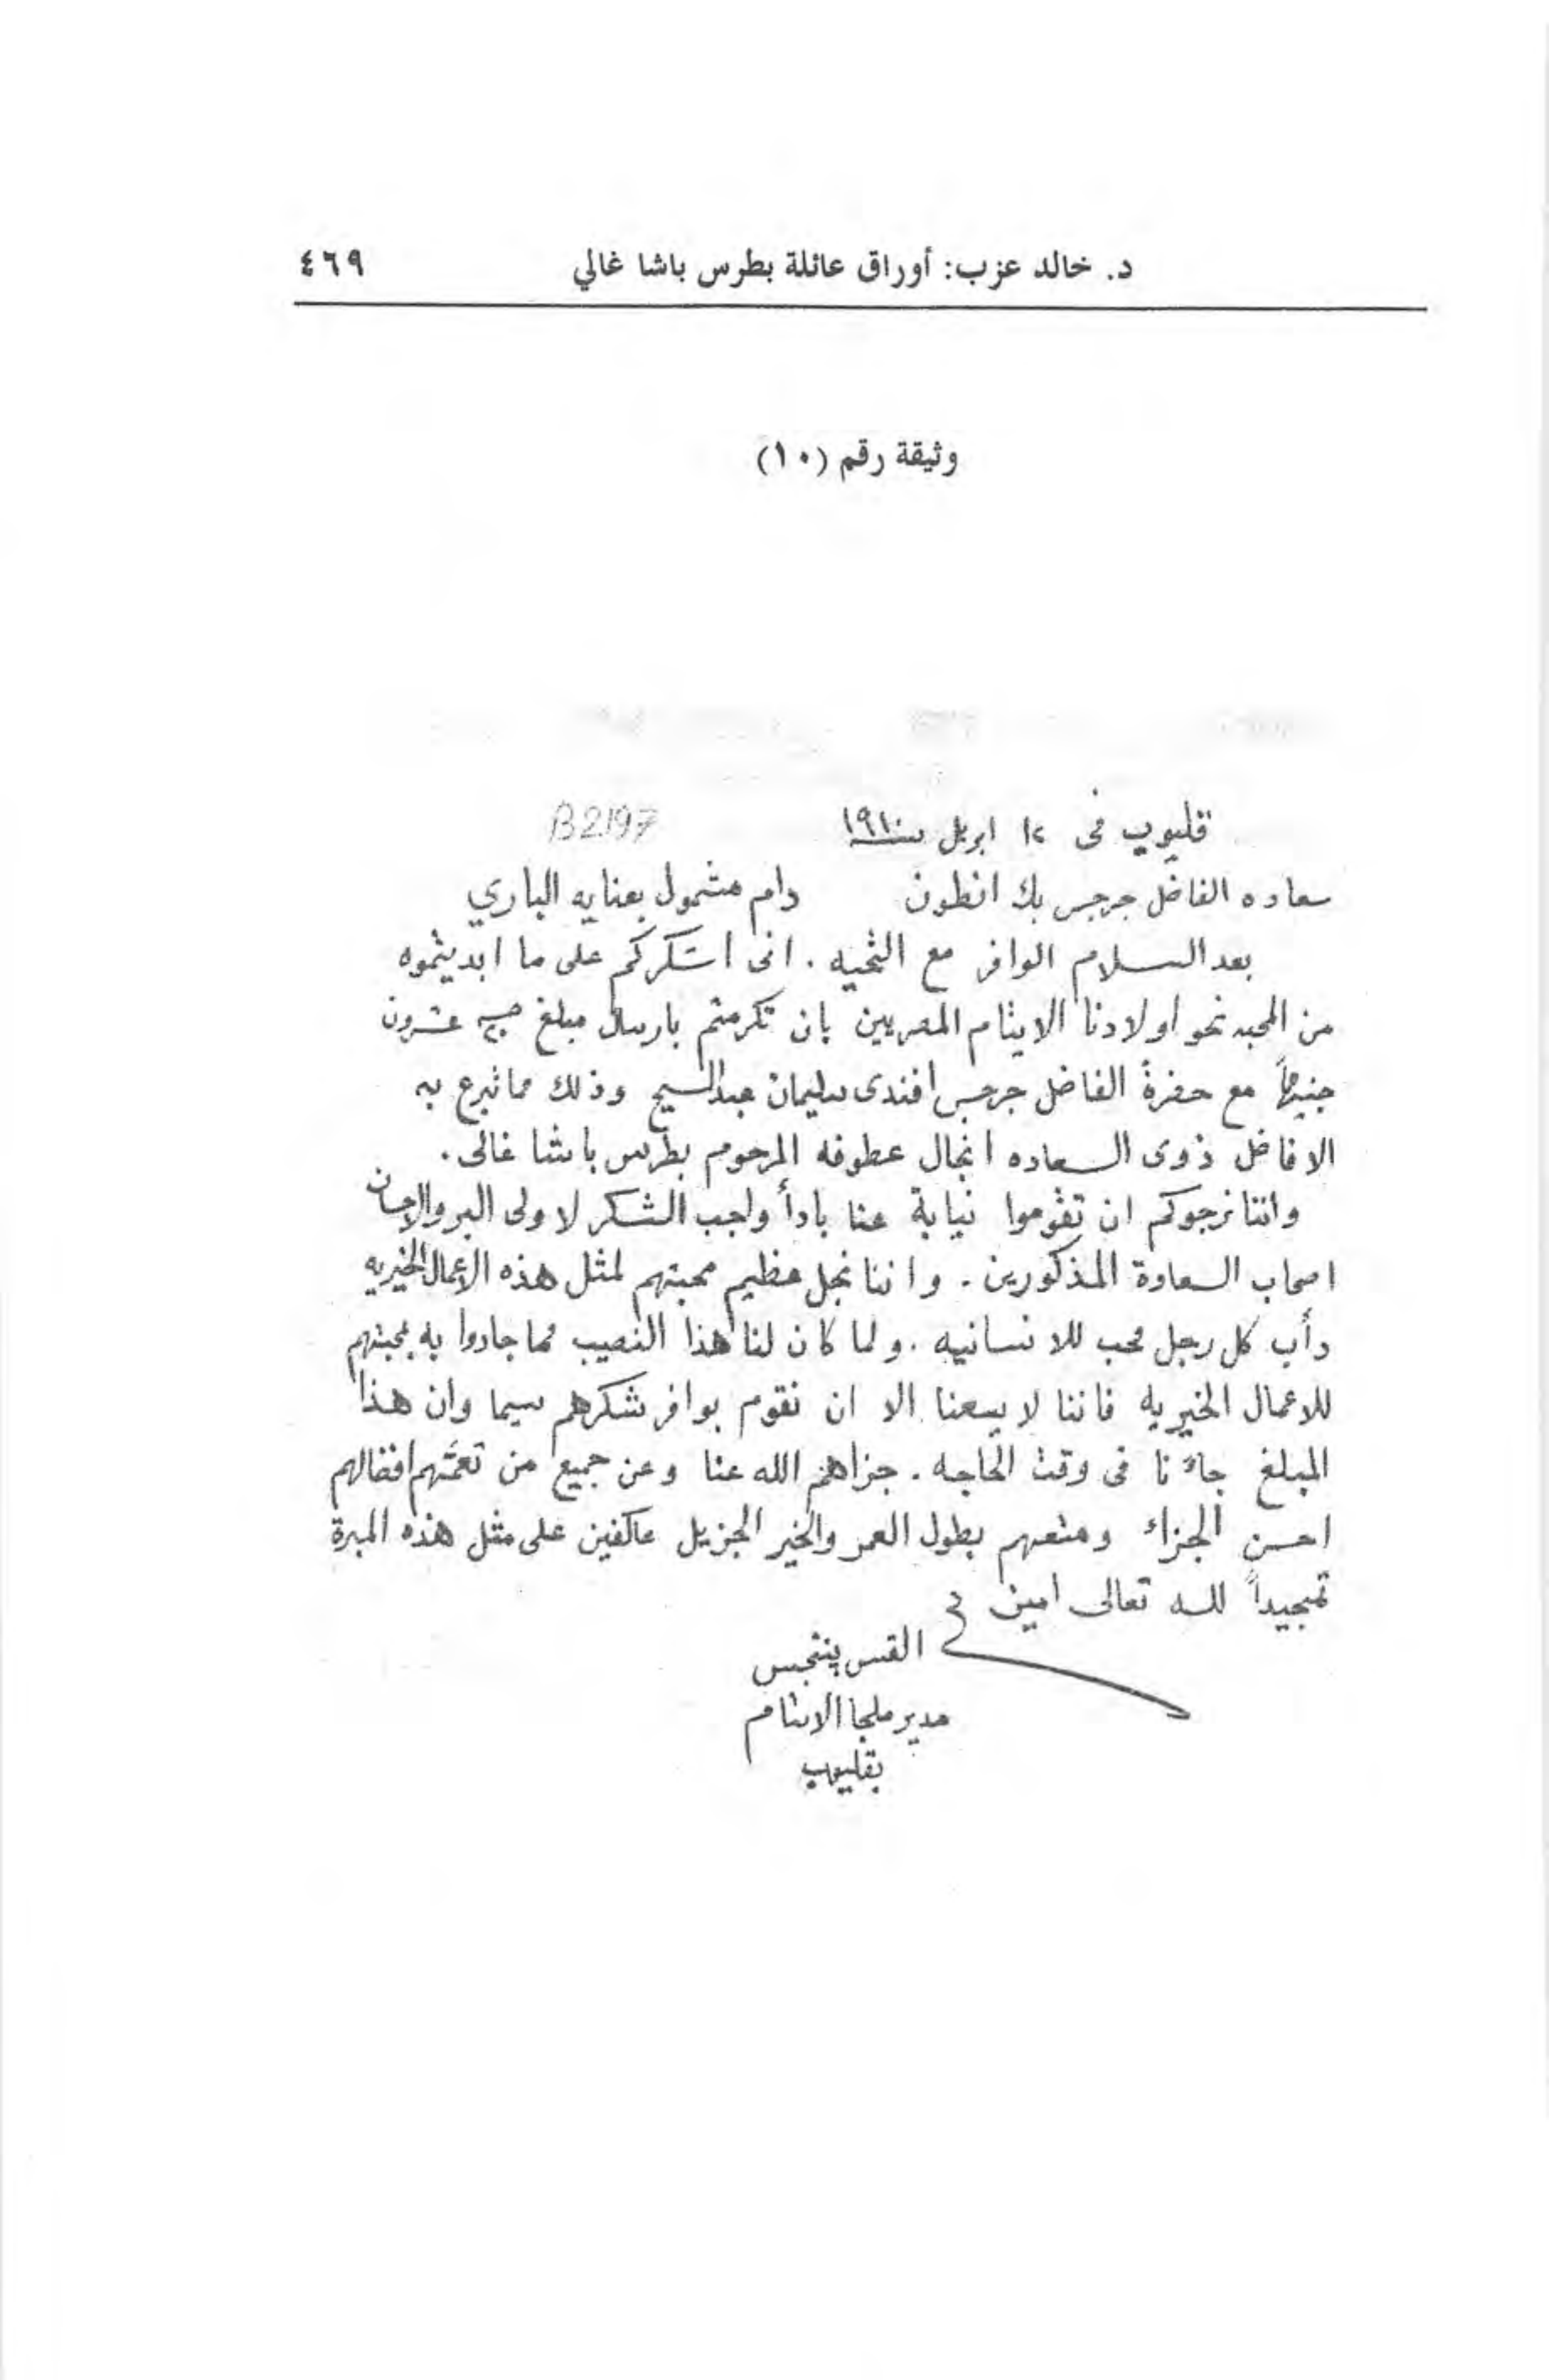 د. خالد عزب: أوراق عائلة بطرس باشا غالي ٤٦٩
وثيقة رقم (١٠)
قليوب فى ١٢ ابريل سنة ١٩١٠ B2197
سعاده الفاضل جرجس بك انطون دام مشمول بعنايه الباري
بعد السلام الوافر مع التحيه . انى اشكركم على ما ابديتموه
من المحبه نحو اولادنا الايتام المصريين بان تكرمتم بارسال مبلغ عشرون
جنيهاً مع حضرة الفاضل جرجس افندى سليمان عبد المسيح وذلك مما تبرع به
الافاضل ذوى السعاده انجال عطوفه المرحوم بطرس باشا غالى .
واننا نرجوكم ان تقوموا نيابة عنا بادأ واجب الشكر لاولى البر والاحسان
اصحاب السعادة المذكورين . واننا نجل عظيم محبتهم لمثل هذه الاعمال الخيريه
دأب كل رجل محب للانسانيه . ولما كان لنا هذا النصيب مما جادوا به بمحبتهم
للاعمال الخيريه فاننا لا يسعنا الا ان نقوم بوافر شكرهم سيما وان هذا
المبلغ جاءنا فى وقت الحاجه . جزاهم الله عنا وعن جميع من تعمهم افضالهم
احسن الجزاء ومتعهم بطول العمر والخير الجزيل عاكفين على مثل هذه المبرة
تمجيداً لله تعالى امين
القس
مدير ملجا الايتام
بقليوب